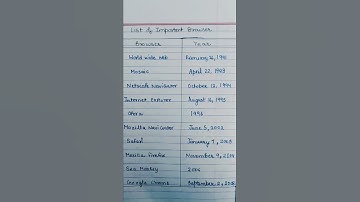 List of Important Browser
Browser Year
World wide web February 26, 1991
Mosaic April 22, 1993
Netscape Navigator October 13, 1994
Internet Explorer August 16, 1995
Opera 1996
Mozilla Navigator June 5, 2002
Safari January 7, 2003
Mozilla Firefox November 9, 2004
Sea Monkey 2005
Google Chrome September 2, 2008